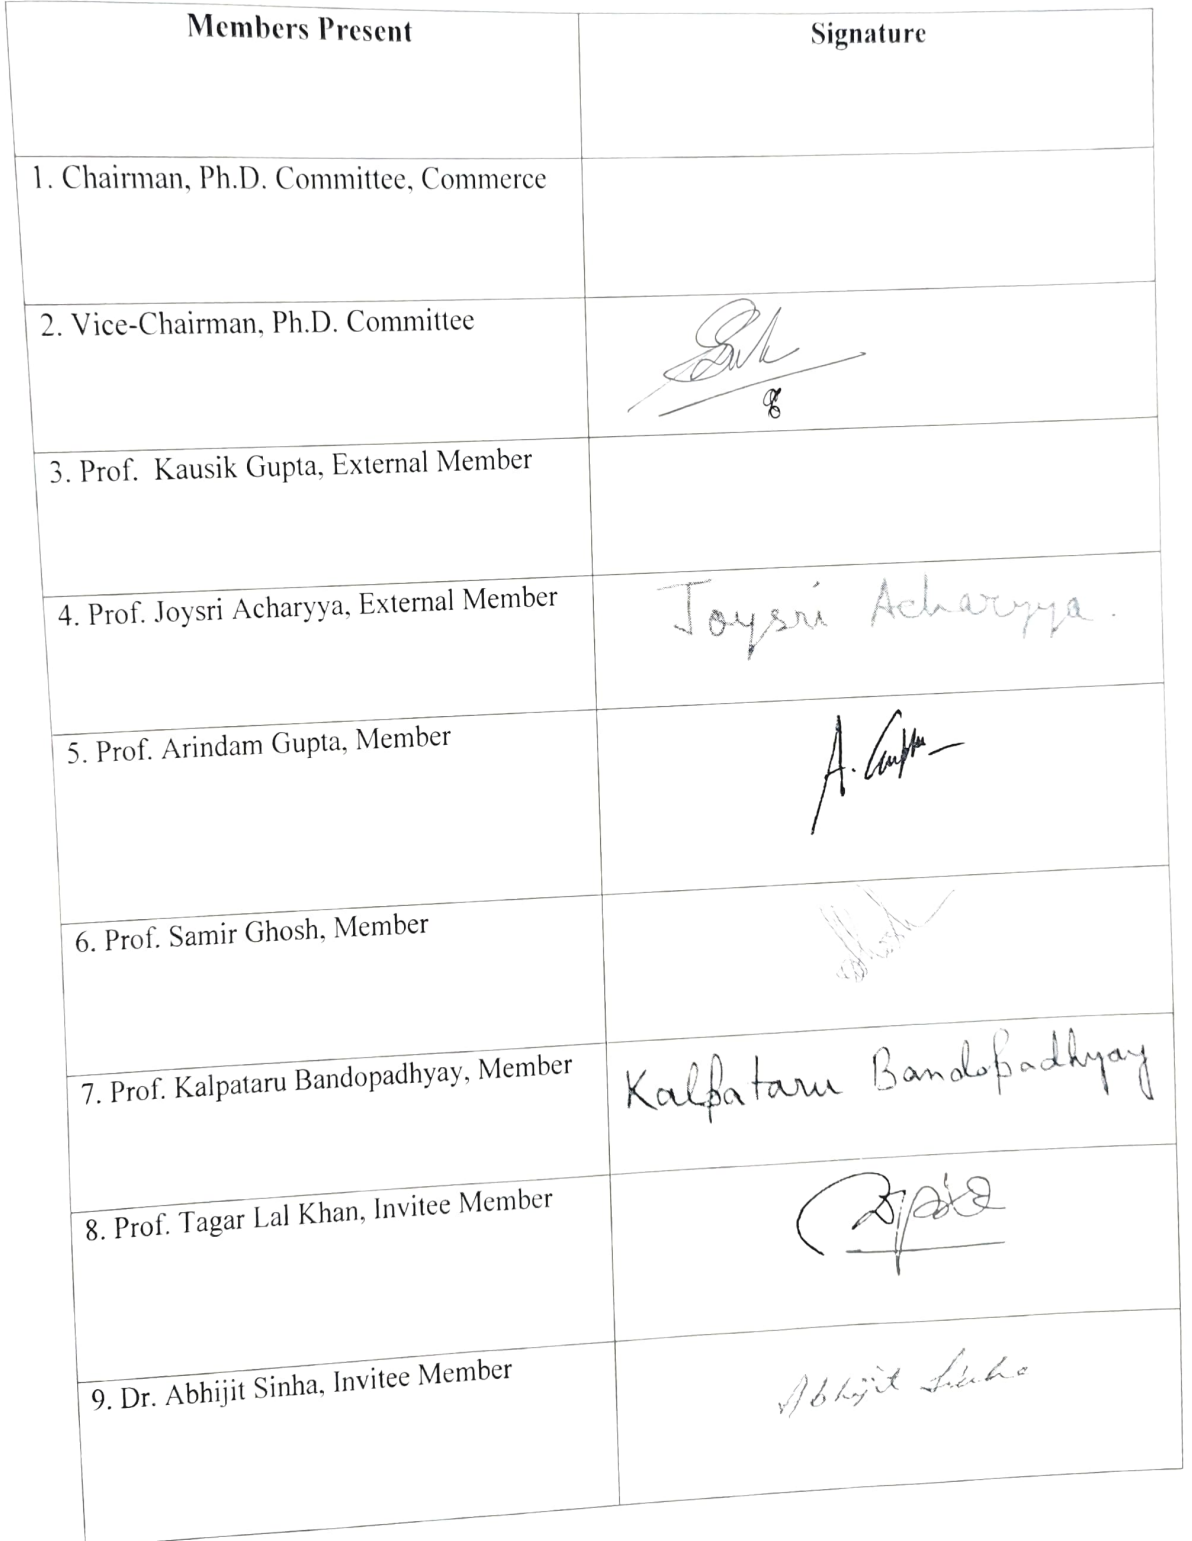 Members Present
Signature
1. Chairman, Ph.D. Committee, Commerce
2. Vice-Chairman, Ph.D. Committee
3. Prof. Kausik Gupta, External Member
4. Prof. Joysri Acharyya, External Member
Joysri Acharyya.
5. Prof. Arindam Gupta, Member
A. Gupta
6. Prof. Samir Ghosh, Member
7. Prof. Kalpataru Bandopadhyay, Member
Kalpataru Bandopadhyay
8. Prof. Tagar Lal Khan, Invitee Member
9. Dr. Abhijit Sinha, Invitee Member
Abhijit Sinha